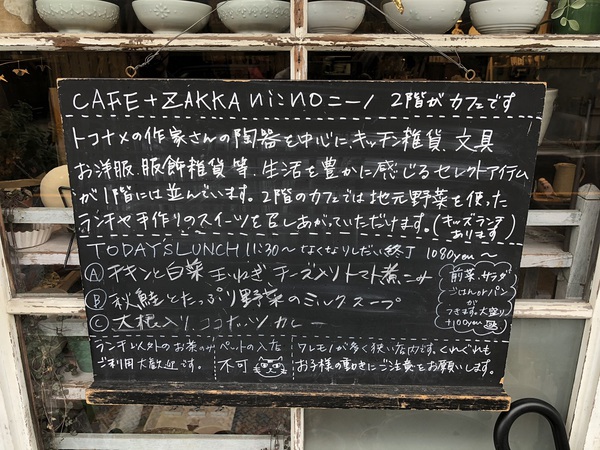 CAFE+ZAKKA NiiNO ニーノ 2階がカフェです
トコナメの作家さんの陶器を中心に、キッチン雑貨、文具
お洋服、服飾雑貨等、生活を豊かに感じるセレクトアイテム
が1階には並んでいます。2階のカフェでは地元野菜を使った
ランチや手作りのスイーツを召しあがっていただけます。(キッズランチあります)
TODAY'S LUNCH 11:30〜なくなりしだい終了 1080yen〜
Ⓐ チキンと白菜 玉ねぎ チーズ入りトマト煮こみ
Ⓑ 秋鮭とたっぷり野菜のミルクスープ
Ⓒ 大根入り ココナッツカレー
前菜、サラダ
ごはんorパン
が
つきます。大盛り
+100yen
ランチ以外のお茶のみ
ご利用大歓迎です。
ペットの入店
不可
ワレモノが多く狭い店内です。くれぐれも
お子様の動きにご注意をお願いします。